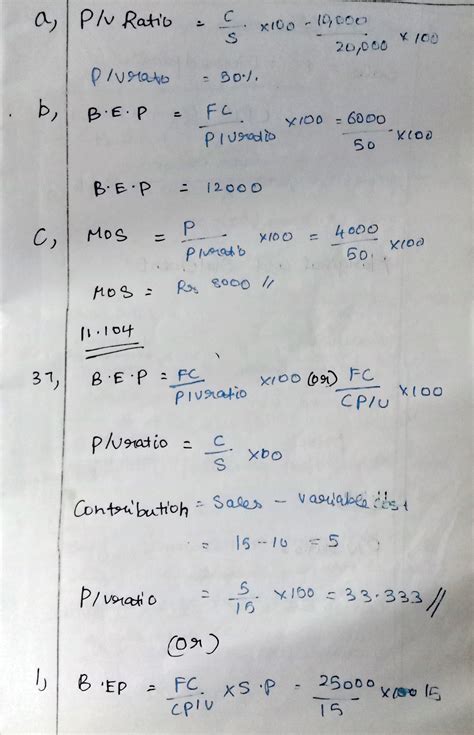 a, P/V Ratio = C/S x100 - 10,000/20,000 x 100
P/V ratio = 50%.
b, B.E.P = FC/P/V ratio x100 = 6000/50 x100
B.E.P = 12000
C, MOS = P/P/V ratio x100 = 4000/50. x100
MOS = Rs 8000 //
11.104
37, B.E.P = FC/P/V ratio x100 (or) FC/CP/U x100
P/V ratio = C/S x100
Contribution = Sales - variable cost
= 15 - 10 = 5
P/V ratio = 5/15 x100 = 33.333 //
(or)
1, B.EP = FC/CP/U x S.P = 25000/15 x 15